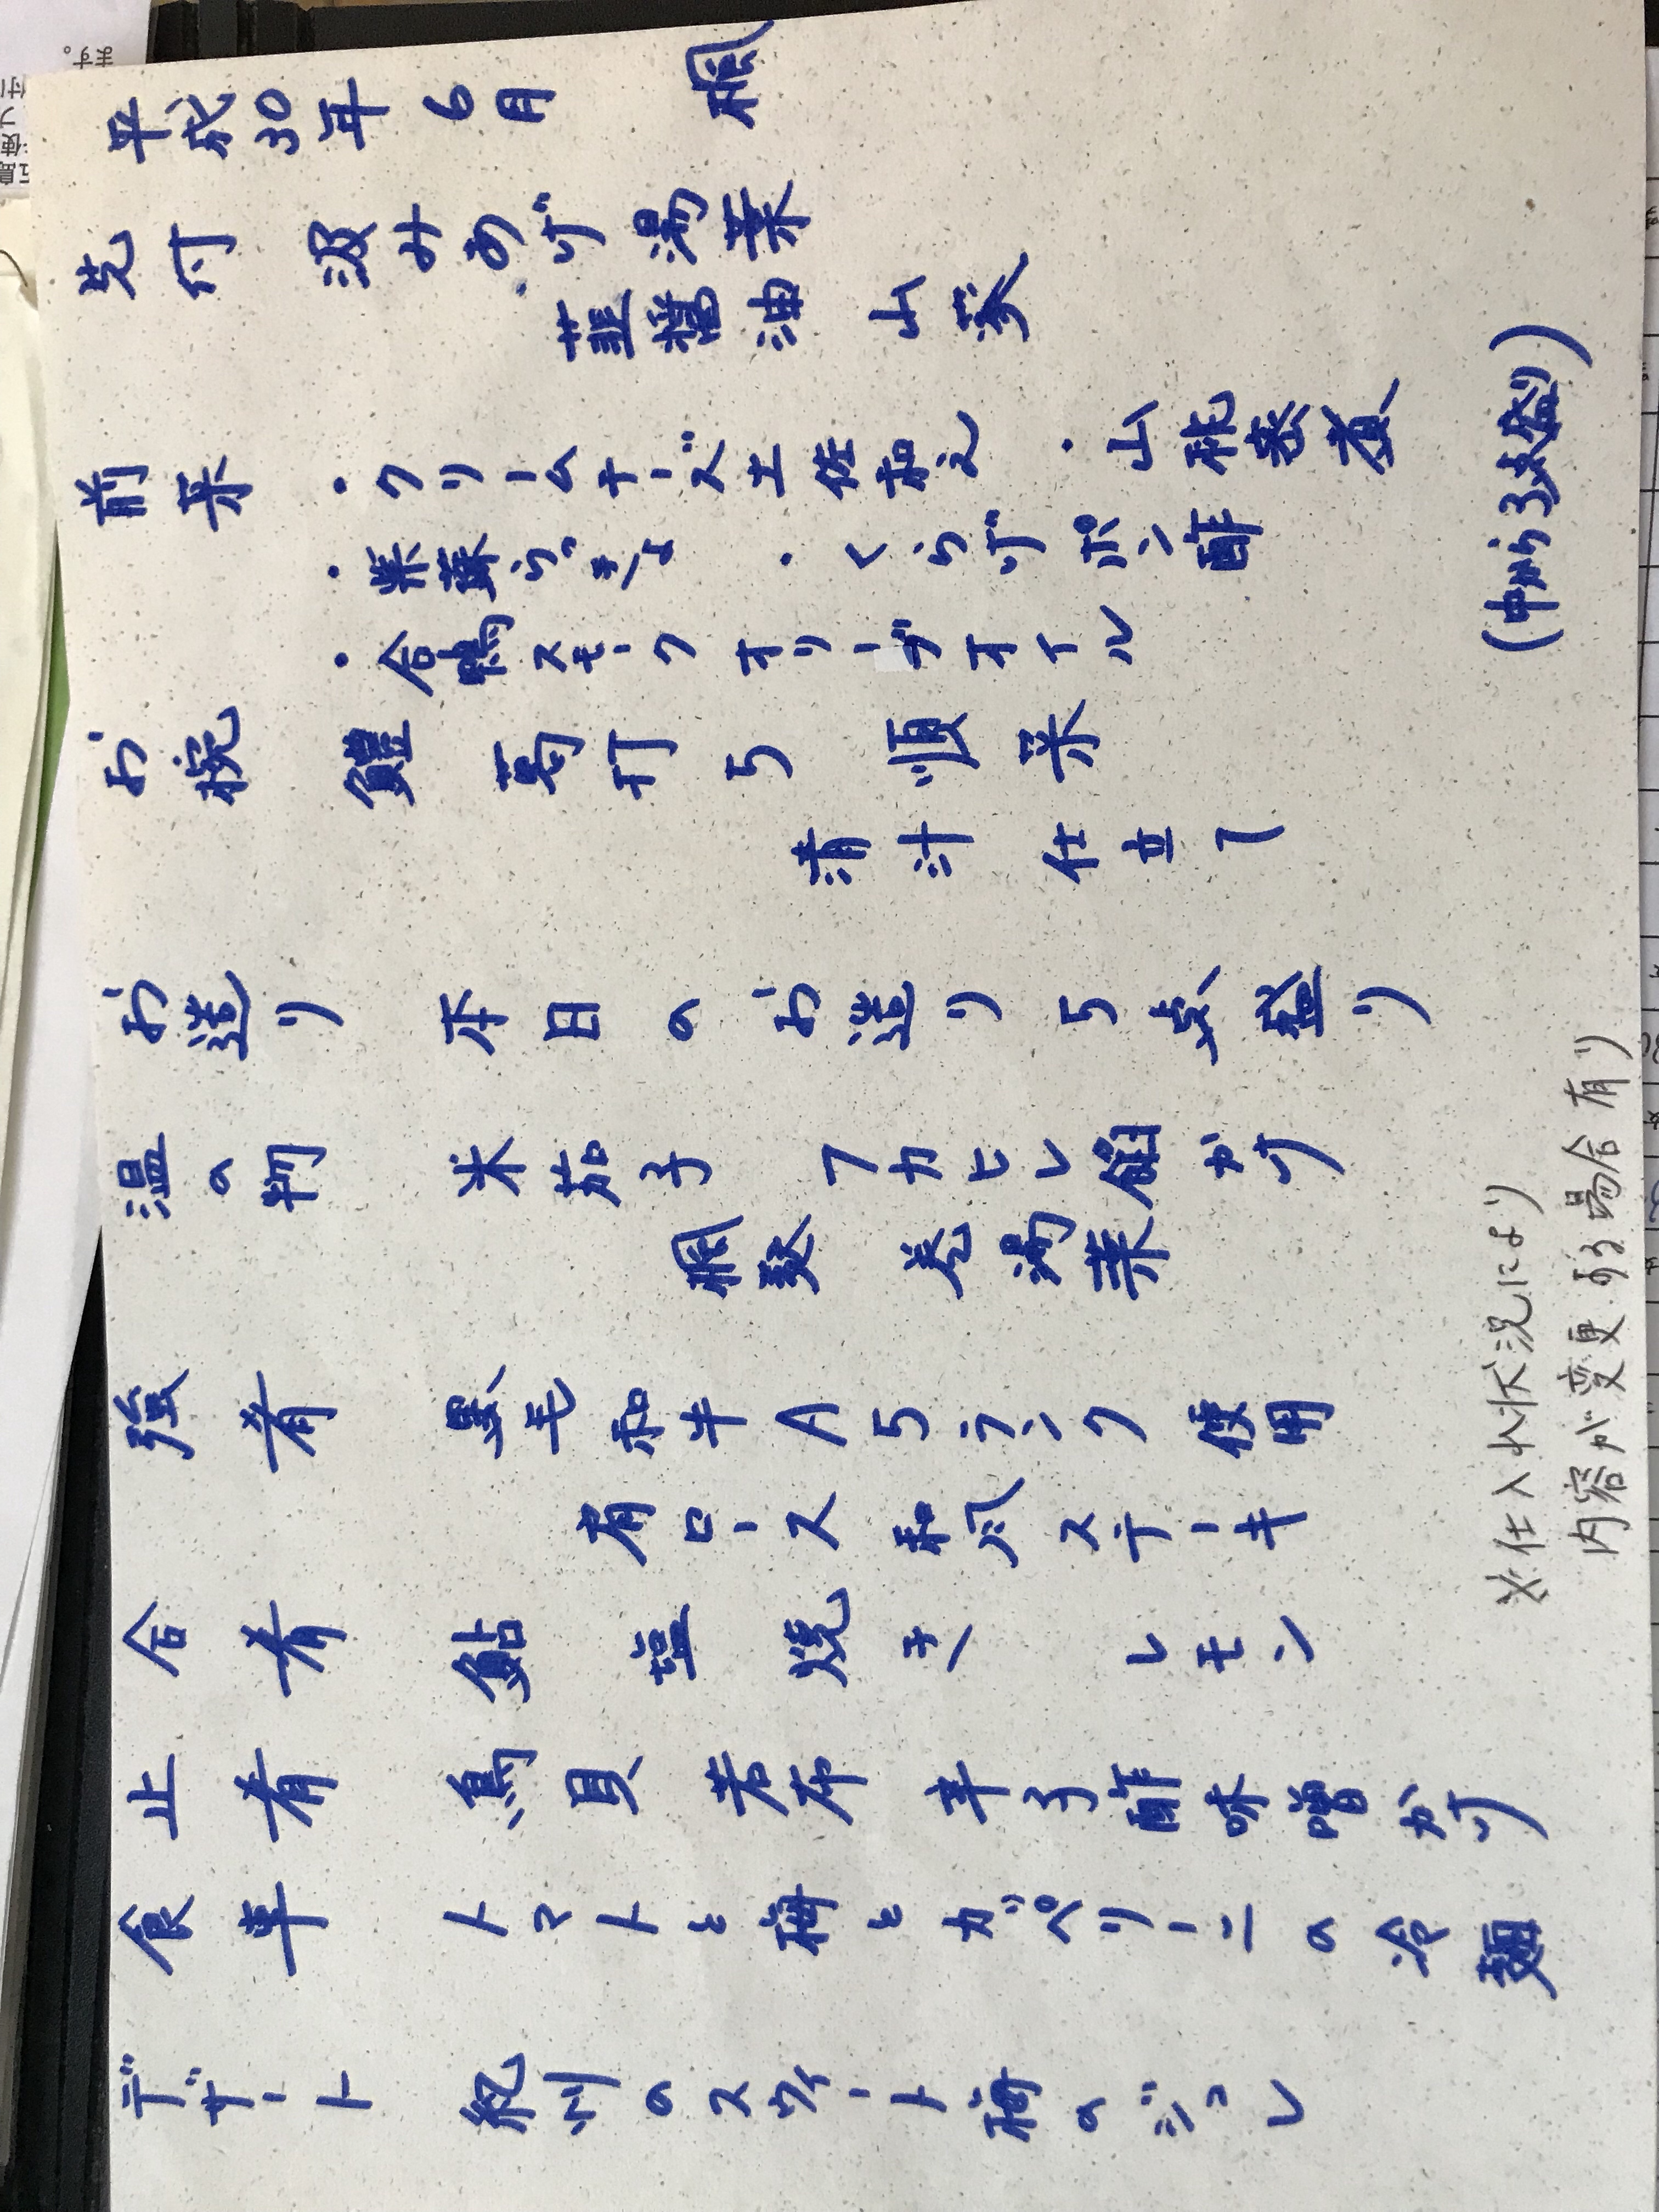 平成30年6月 楓
先付 汲みあげ湯葉
韮醤油 山葵
前采 ・クリームチーズ土佐和え ・山桃蜜煮
・紫蘇つぶ ・くらげポン酢
・合鴨スモークオリーブオイル
(中から3点盛り)
お椀 鱧 葛打ち 順采
清汁 仕立て
お造り 本日のお造り5点盛り
温の物 米茄子 フカヒレ餡かけ
楓麩 巻湯葉
強肴 黒毛和牛A5ランク使用
肩ロース 和風ステーキ
合肴 鮎 塩焼き レモン
止肴 鳥貝 若布 辛子酢味噌かけ
食事 トマトと梅とカッペリーニの冷麺
デザート 紀州のスウィート梅のジュレ
※仕入れ状況により
内容が変更する場合有り